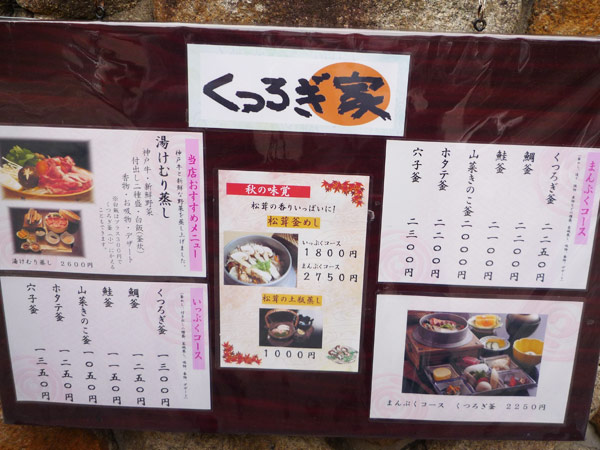 くつろぎ家
当店おすすめメニュー
神戸牛と新鮮な野菜を蒸し上げました。
湯けむり蒸し
神戸牛・新鮮野菜
付出し二種盛・御飯(釜炊)
香物・お吸物・デザート
湯けむり蒸し 2600円
いっぷくコース
くつろぎ釜 一三〇〇円
鯛釜 一二五〇円
鮭釜 一一五〇円
山菜きのこ釜 一〇五〇円
ホタテ釜 一二五〇円
穴子釜 一三五〇円
秋の味覚
松茸の香りいっぱいに!
松茸釜めし
いっぷくコース
1800円
まんぷくコース
2750円
松茸の土瓶蒸し
1000円
まんぷくコース
くつろぎ釜 二二五〇円
鯛釜 二二〇〇円
鮭釜 二一〇〇円
山菜きのこ釜 二〇〇〇円
ホタテ釜 二二〇〇円
穴子釜 二三〇〇円
まんぷくコース くつろぎ釜 2250円